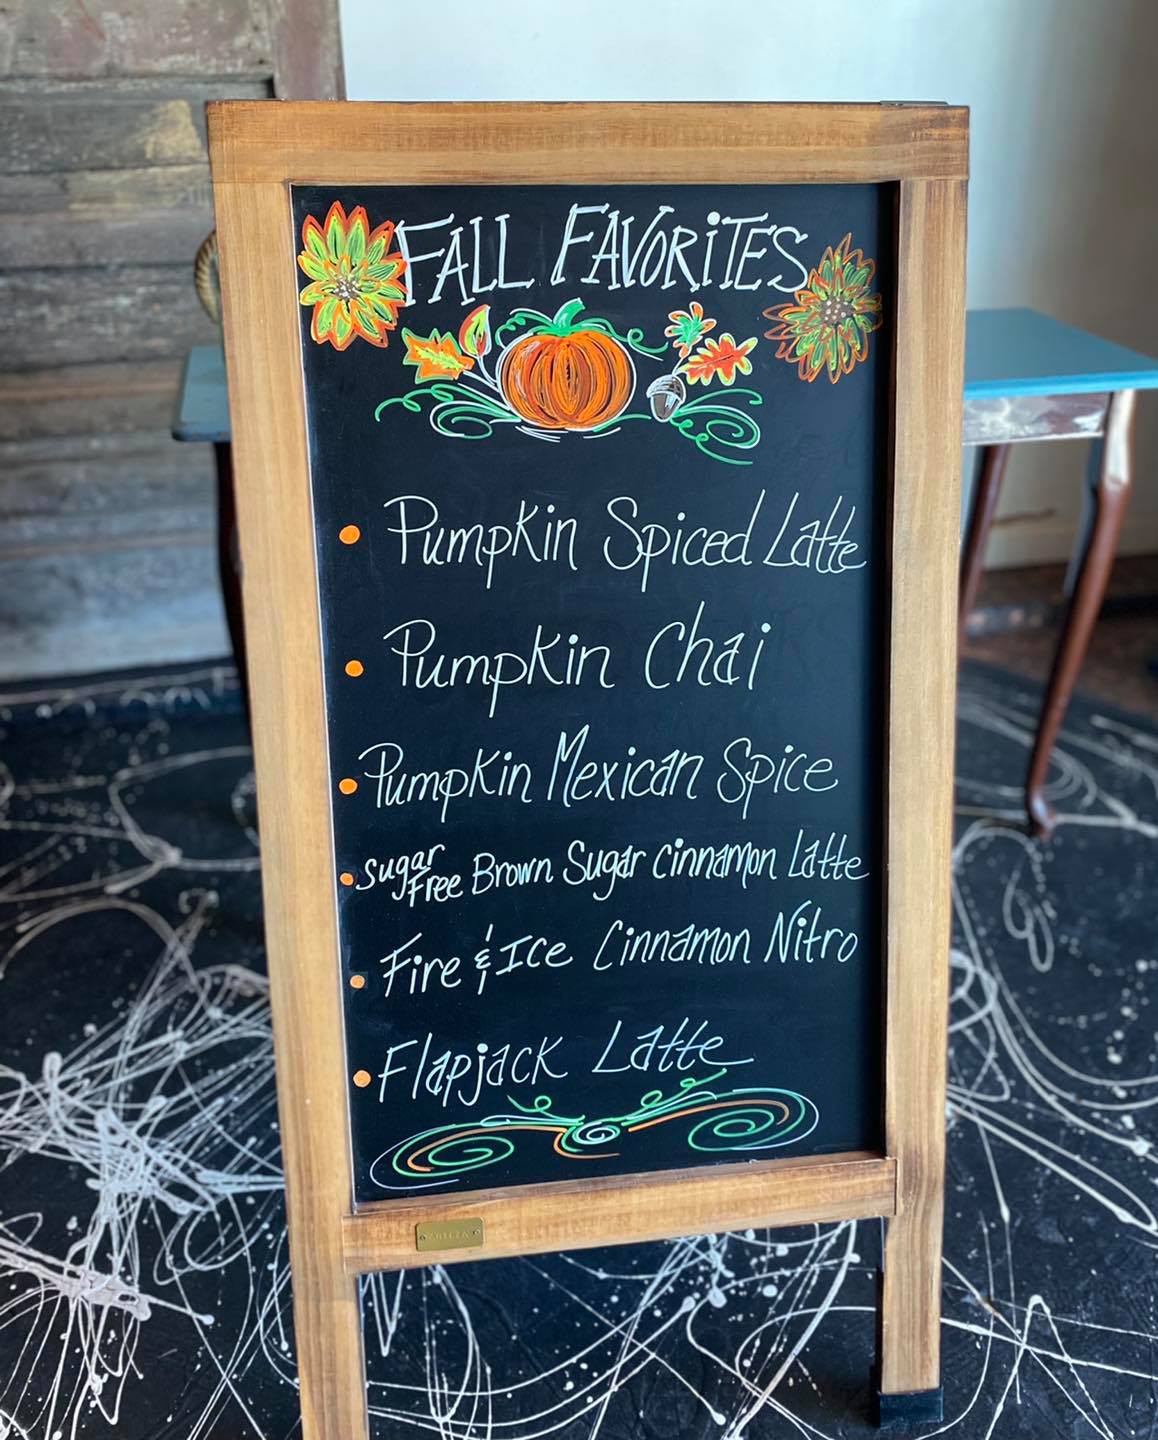 FALL FAVORiTES
• Pumpkin Spiced Latte
• Pumpkin Chai
• Pumpkin Mexican Spice
• Sugar Free Brown Sugar Cinnamon Latte
• Fire & Ice Cinnamon Nitro
• Flapjack Latte